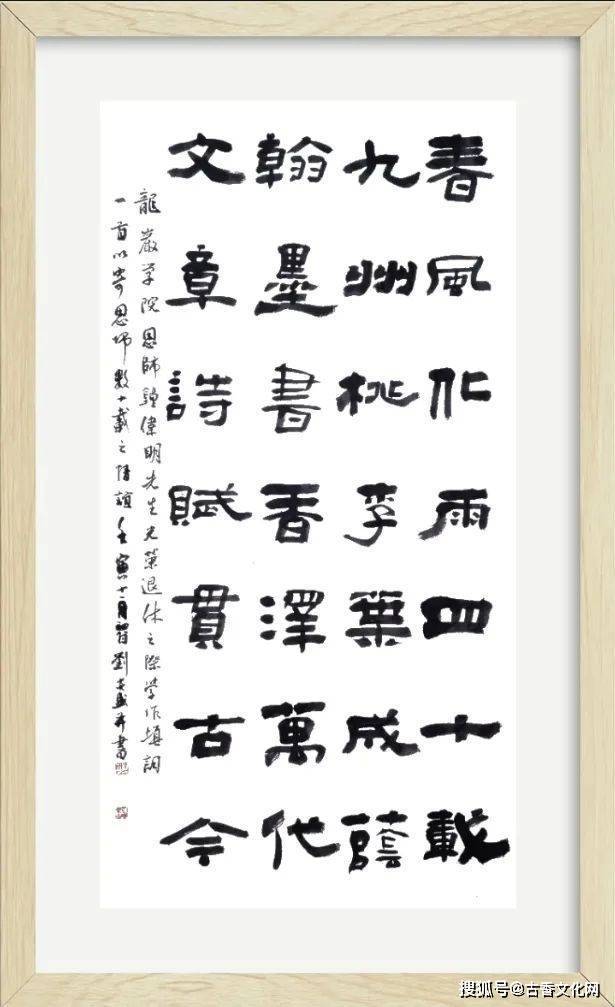 春風化雨四十載
九州桃李葉成蔭
翰墨書香澤萬代
文章詩賦貫古今
龍巖学院恩師鐘偉明先生光榮退休之際学作填詞
一首以寄恩师數十載之情誼壬寅十二月劉并書
搜狐号@古香文化网